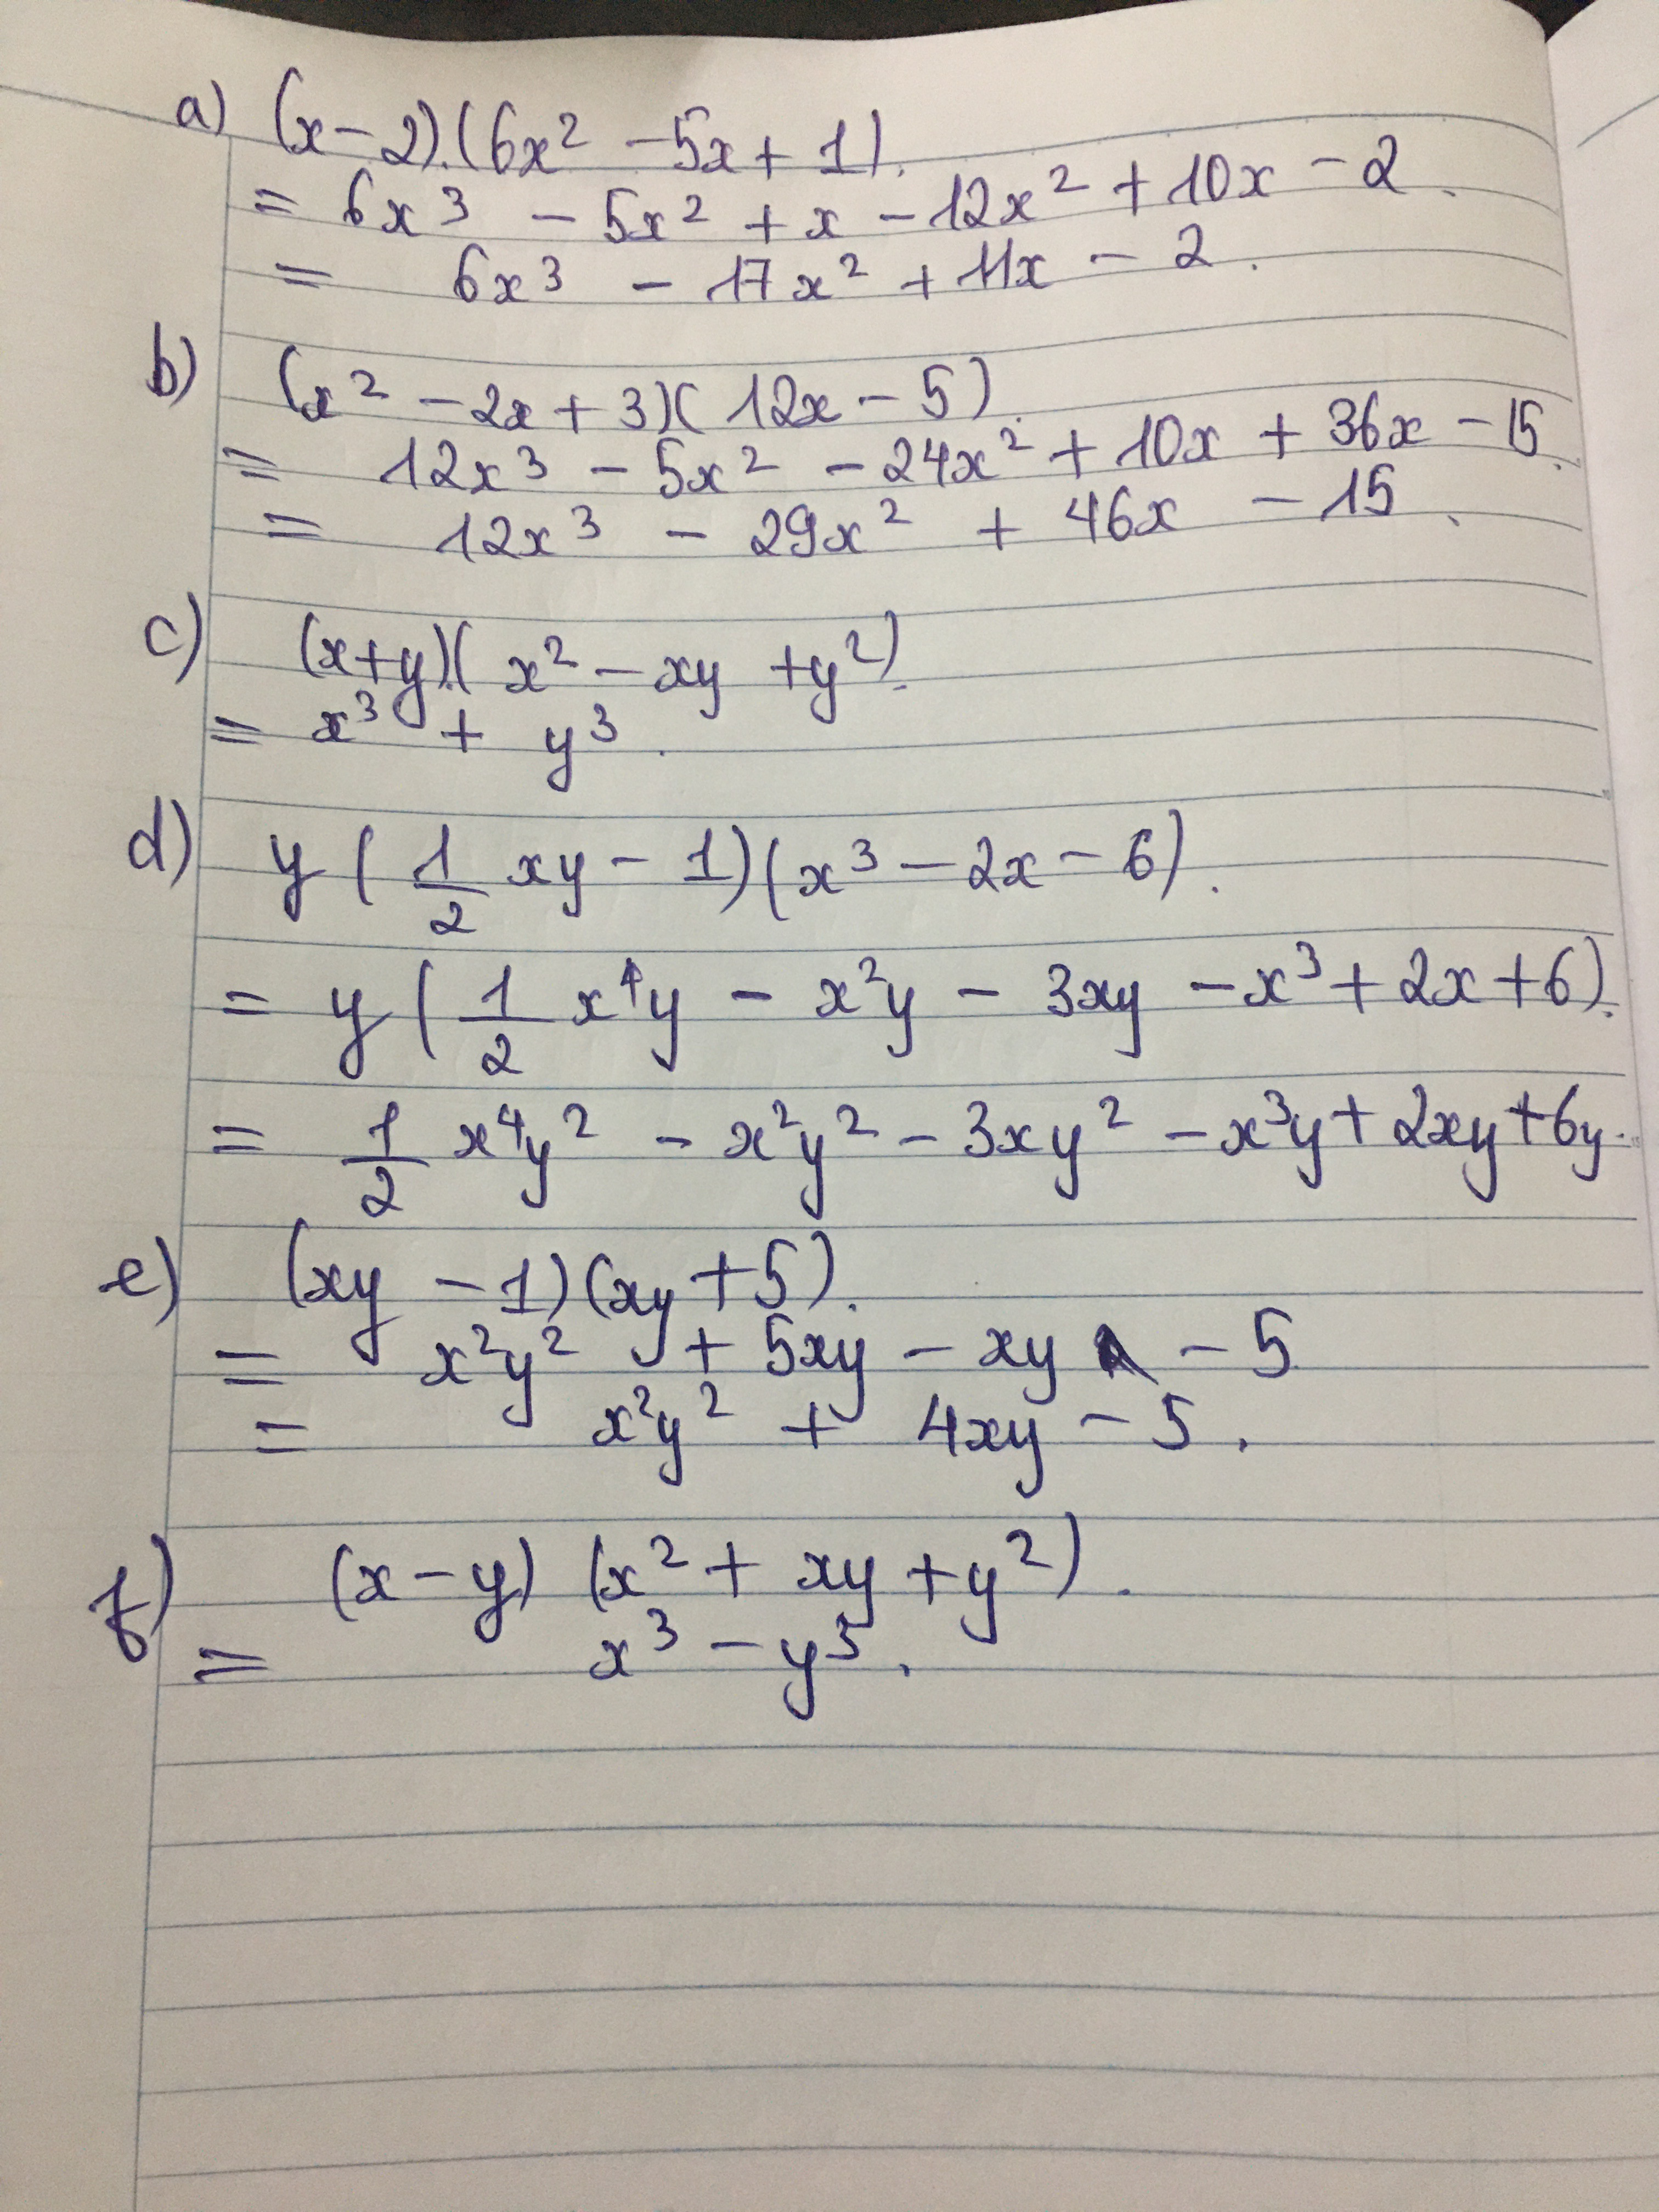 a) (x-2).(6x² -5x + 1).
= 6x³ - 5x² + x - 12x² + 10x - 2.
= 6x³ - 17x² + 11x - 2.
b) (x² - 2x + 3)(12x - 5).
= 12x³ - 5x² - 24x² + 10x + 36x - 15.
= 12x³ - 29x² + 46x - 15.
c) (x+y).(x² - xy + y²).
= x³ + y³.
d) y(1/2 xy - 1)(x³ - 2x - 6).
= y(1/2 x⁴y - x²y - 3xy - x³ + 2x + 6).
= 1/2 x⁴y² - x²y² - 3xy² - x³y + 2xy + 6y.
e) (xy - 1)(xy + 5).
= x²y² + 5xy - xy - 5
= x²y² + 4xy - 5.
f) (x - y) (x² + xy + y²).
= x³ - y³.